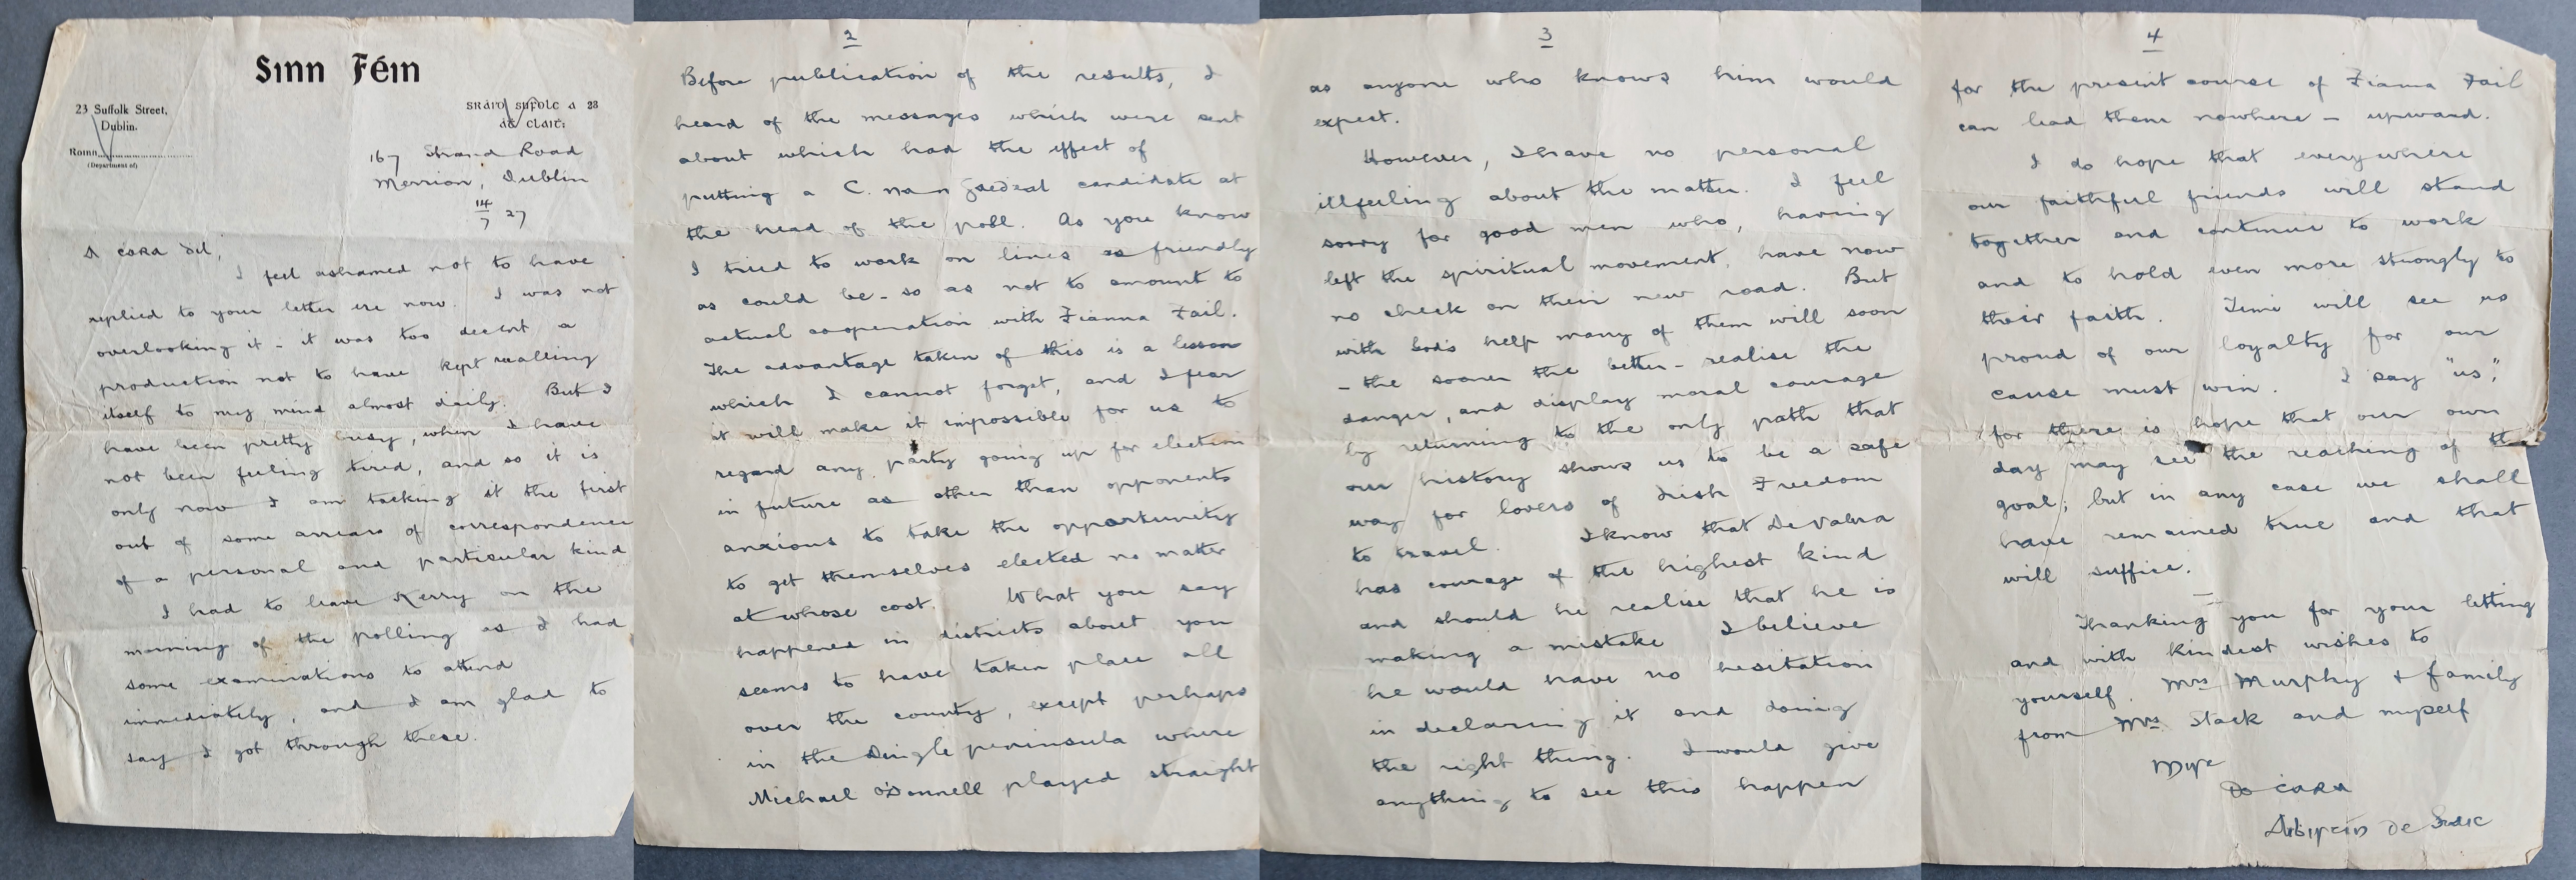 Sinn Féin
23 Suffolk Street,
Dublin.
Roinn
(Department of)
sráid sufolc a 23
áċ cliaṫ:
167 Strand Road
Merrion, Dublin
14/7 27
A cara dil,
I feel ashamed not to have
replied to your letter ere now. I was not
overlooking it - it was too decent a
production not to have kept recalling
itself to my mind almost daily. But I
have been pretty busy, when I have
not been feeling tired, and so it is
only now I am tacking it the first
out of some arrears of correspondence
of a personal and particular kind
I had to leave Kerry on the
morning of the polling as I had
some examinations to attend
immediately, and I am glad to
say I got through these.
2
Before publication of the results, I
heard of the messages which were sent
about which had the effect of
putting a C. na nGaedeal candidate at
the head of the poll. As you know
I tried to work on lines as friendly
as could be - so as not to amount to
actual cooperation with Fianna Fail.
The advantage taken of this is a lesson
which I cannot forget, and I fear
it will make it impossible for us to
regard any party going up for election
in future as other than opponents
anxious to take the opportunity
to get themselves elected no matter
at whose cost. What you say
happened in districts about you
seems to have taken place all
over the county, except perhaps
in the Dingle peninsula where
Michael O'Donnell played straight
3
as anyone who knows him would
expect.
However, I have no personal
illfeeling about the matter. I feel
sorry for good men who, having
left the spiritual movement, have now
no check on their new road. But
with God's help many of them will soon
- the sooner the better - realise the
danger, and display moral courage
by returning to the only path that
our history shows us to be a safe
way for lovers of Irish Freedom
to travel. I know that De Valera
has courage of the highest kind
and should he realise that he is
making a mistake I believe
he would have no hesitation
in declaring it and doing
the right thing. I would give
anything to see this happen
4
for the present course of Fianna Fail
can lead them nowhere - upward.
I do hope that everywhere
our faithful friends will stand
together and continue to work
and to hold even more strongly to
their faith. Time will see us
proud of our loyalty for our
cause must win. I say "us",
for there is hope that our own
day may see the reaching of th
goal; but in any case we shall
have remained true and that
will suffice.
Thanking you for your letting
and with kindest wishes to
yourself. Mrs Murphy & family
from Mrs Stack and myself
Mise
Do cara
Aibhistín de Staic